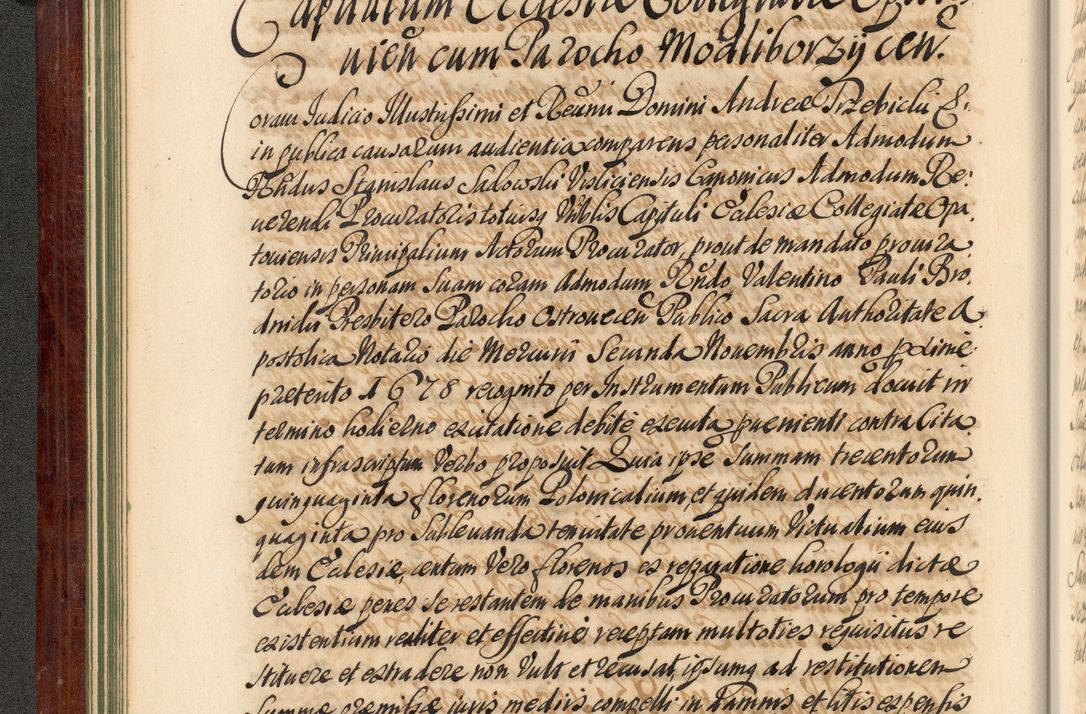 Capitulum Ecclesiæ Collegiatæ
nień cum Parocho Modliborzycen̄.
oram Iudicio Illustrissimi et Reun̄i Domini Andreæ Trzebicki &.
in publica causarum audientia comparens personaliter Admodum
Rn̄dus Stanislaus Salowski Visliciensis Canonicus Admodum Re:
uerendi Procuratoris totiusq Vn̄blis Capituli Ecclesiæ Collegiatæ Opa
touiensis Principalium Actorum Procurator, prout de mandato procura
torio in personam suam coram Admodum Rn̄do Valentino Pauli Bro
dnicki Presbitero Parocho Ostrouecen̄ Publico Sacra Authoritate A
postolica Notario die Mercurii Secunda Nouembris anno pxime
præterito 1678 recognito per Instrumentum Publicum docuit in
termino hodierno ex citatione debite executa puenienti contra Cita
tum infrascriptum Verbo proposuit Quia ipse Summam trecentorum
quinquaginta florenorum Polonicalium, et quidem ducentorum quin
quaginta pro Subleuanda tenuitate prouentuum Victualium eius
dem Ecclesiæ, centum Vero florenos ex reparatione horologii dictæ
Ecclesiæ penes se restantem de manibus Procuratorum pro tempore
existentium realiter et effectiue receptam multoties requisitus re
stituere et extradere non Vult et recusat, ipsumq ad restitutionem
Summæ præmissæ iuris mediis compelli in Damnis et litis expensis